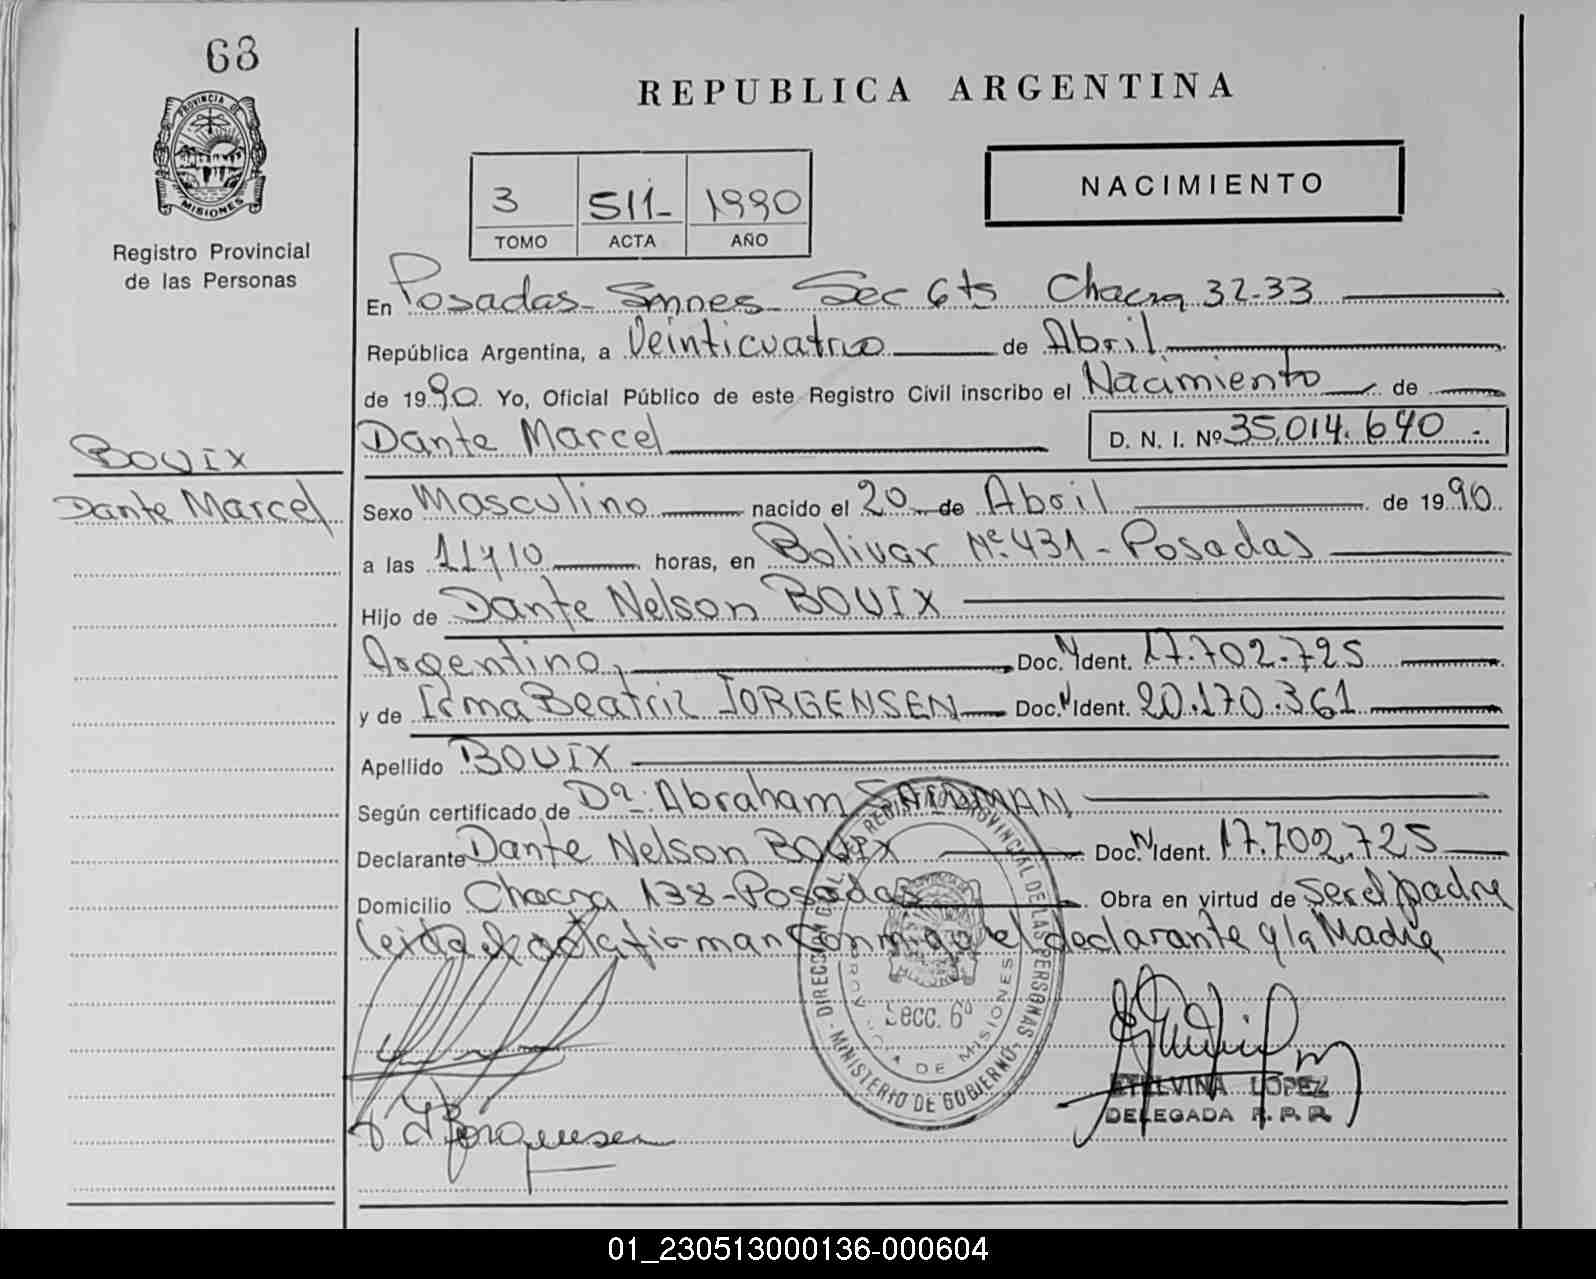 68
PROVINCIA DE
MISIONES
Registro Provincial
de las Personas
REPUBLICA ARGENTINA
3 511- 1990
TOMO ACTA AÑO
NACIMIENTO
En Posadas - Smnes - Sec 6ts Chacra 32-33
República Argentina, a Veinticuatro de Abril
de 1990 Yo, Oficial Público de este Registro Civil inscribo el Nacimiento de
Dante Marcel D. N. I. Nº 35.014.640 -
BOUIX
Dante Marcel
Sexo Masculino nacido el 20 de Abril de 1990
a las 11y10 horas, en Bolivar Nº 431 - Posadas
Hijo de Dante Nelson BOUIX
Argentino, Doc. N Ident. 17.702.725
y de Irma Beatriz JORGENSEN Doc. N Ident. 20.170.361
Apellido BOUIX
Según certificado de Dr. Abraham SAIDMAN
Declarante Dante Nelson BOUIX Doc. N Ident. 17.702.725
Domicilio Chacra 138 - Posadas Obra en virtud de ser el padre
leida el acta firman conmigo el declarante y la Madre
DIRECCION GRAL. DEL REGISTRO PROVINCIAL DE LAS PERSONAS
MINISTERIO DE GOBIERNO
PROVINCIA DE MISIONES
Secc. 6ª
ETELVINA LOPEZ
DELEGADA R. P. P.
I Jorguensen
01_230513000136-000604